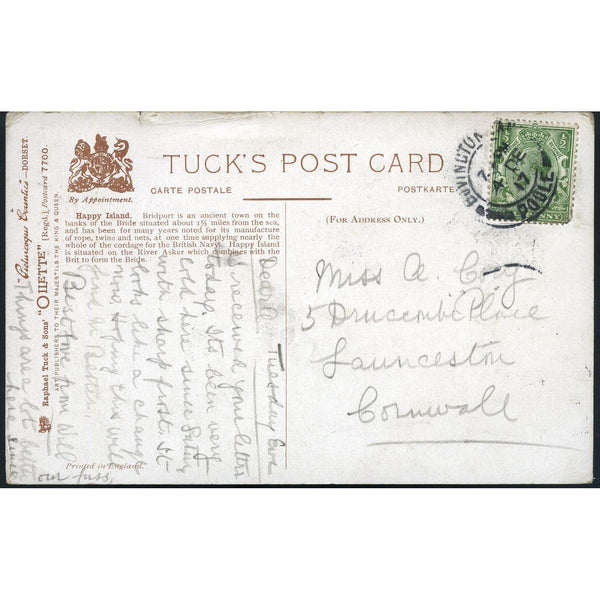 TUCK'S POST CARD
CARTE POSTALE
POSTKARTE
By Appointment.
(FOR ADDRESS ONLY.)
Happy Island. Bridport is an ancient town on the
banks of the Bride situated about 1½ miles from the sea,
and has been for many years noted for its manufacture
of rope, twine and nets, at one time supplying nearly the
whole of the cordage for the British Navy. Happy Island
is situated on the River Asker which combines with the
Brit to form the Bride.
"Picturesque Counties"—DORSET.
Raphael Tuck & Sons' "OILETTE" [Regd.] Postcard 7700.
ART PUBLISHERS TO THEIR MAJESTIES THE KING & QUEEN.
Printed in England.
Tuesday Eve
Dear A
I received your letter
today. Its been very
cold here since Satur
with sharp frost. It
looks like a change
now. Hoping this will
find U Better.
Best Love from Will
Things are a lot better
here since
our fuss,
Miss A
5 Druccombe Place
Launceston
Cornwall
POOLE